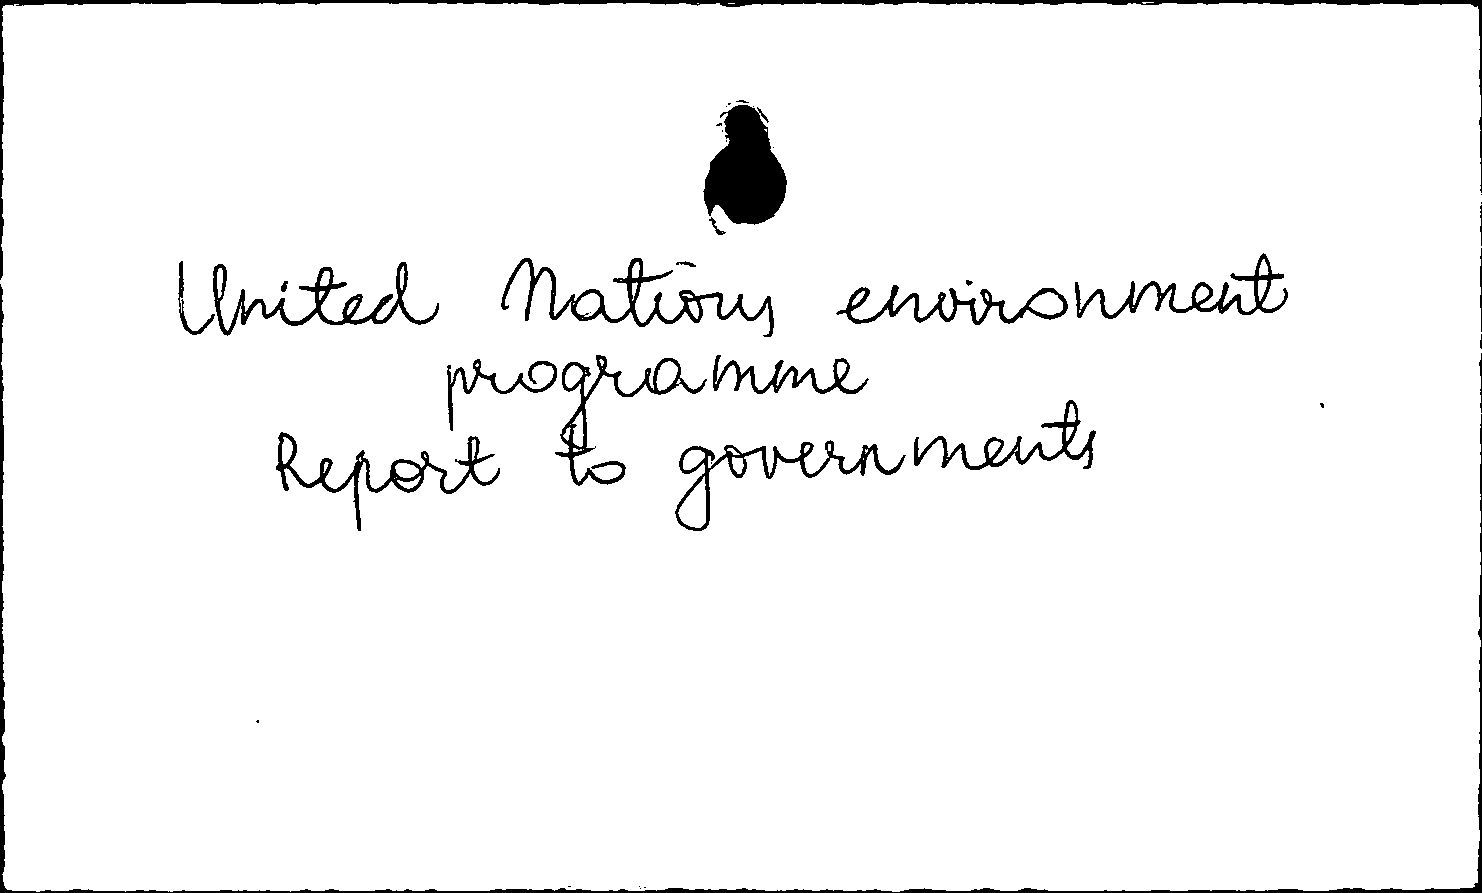 United Nations environment
programme
Report to governments